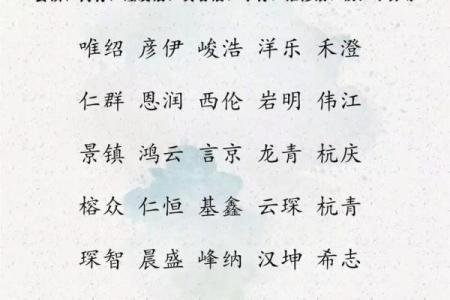 唯绍 彦伊 峻浩 洋乐 禾澄
仁群 恩润 西伦 岩明 伟江
景镇 鸿云 言京 龙青 杭庆
榕众 仁恒 基鑫 云琛 杭青
琛智 晨盛 峰纳 汉坤 希志